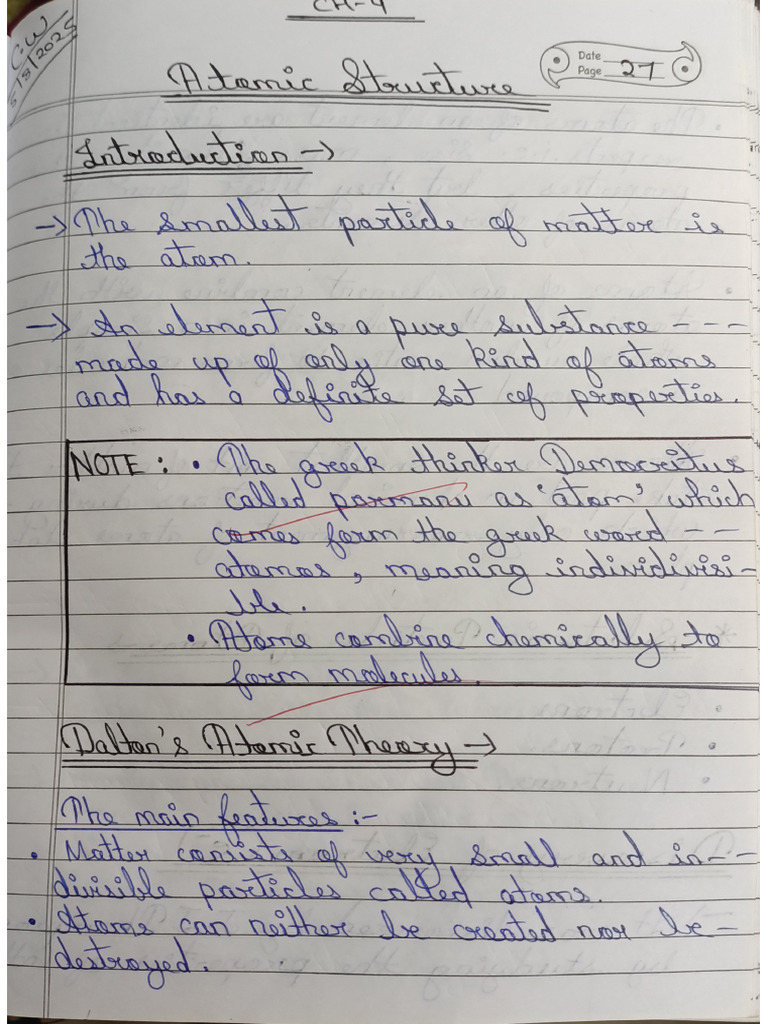 CH-4
C.W
5/8/2025
Date
Page 27
Atomic Structure
Introduction →
→ The smallest particle of matter is
the atom.
→ An element is a pure substance ---
made up of only one kind of atoms
and has a definite set of properties.
NOTE : • The greek thinker Democritus
called parmanu as 'atom' which
comes form the greek word --
atomos, meaning individivisi-
ble.
• Atoms combine chemically to
form molecules.
Dalton's Atomic Theory →
The main features :-
• Matter consists of very small and in--
divisible particles called atoms.
• Atoms can neither be created nor be-
destroyed.